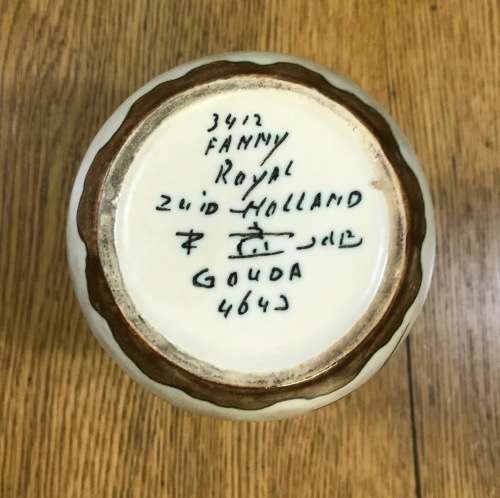 3412
FANNY
ROYAL
ZUID-HOLLAND
GOUDA
4643